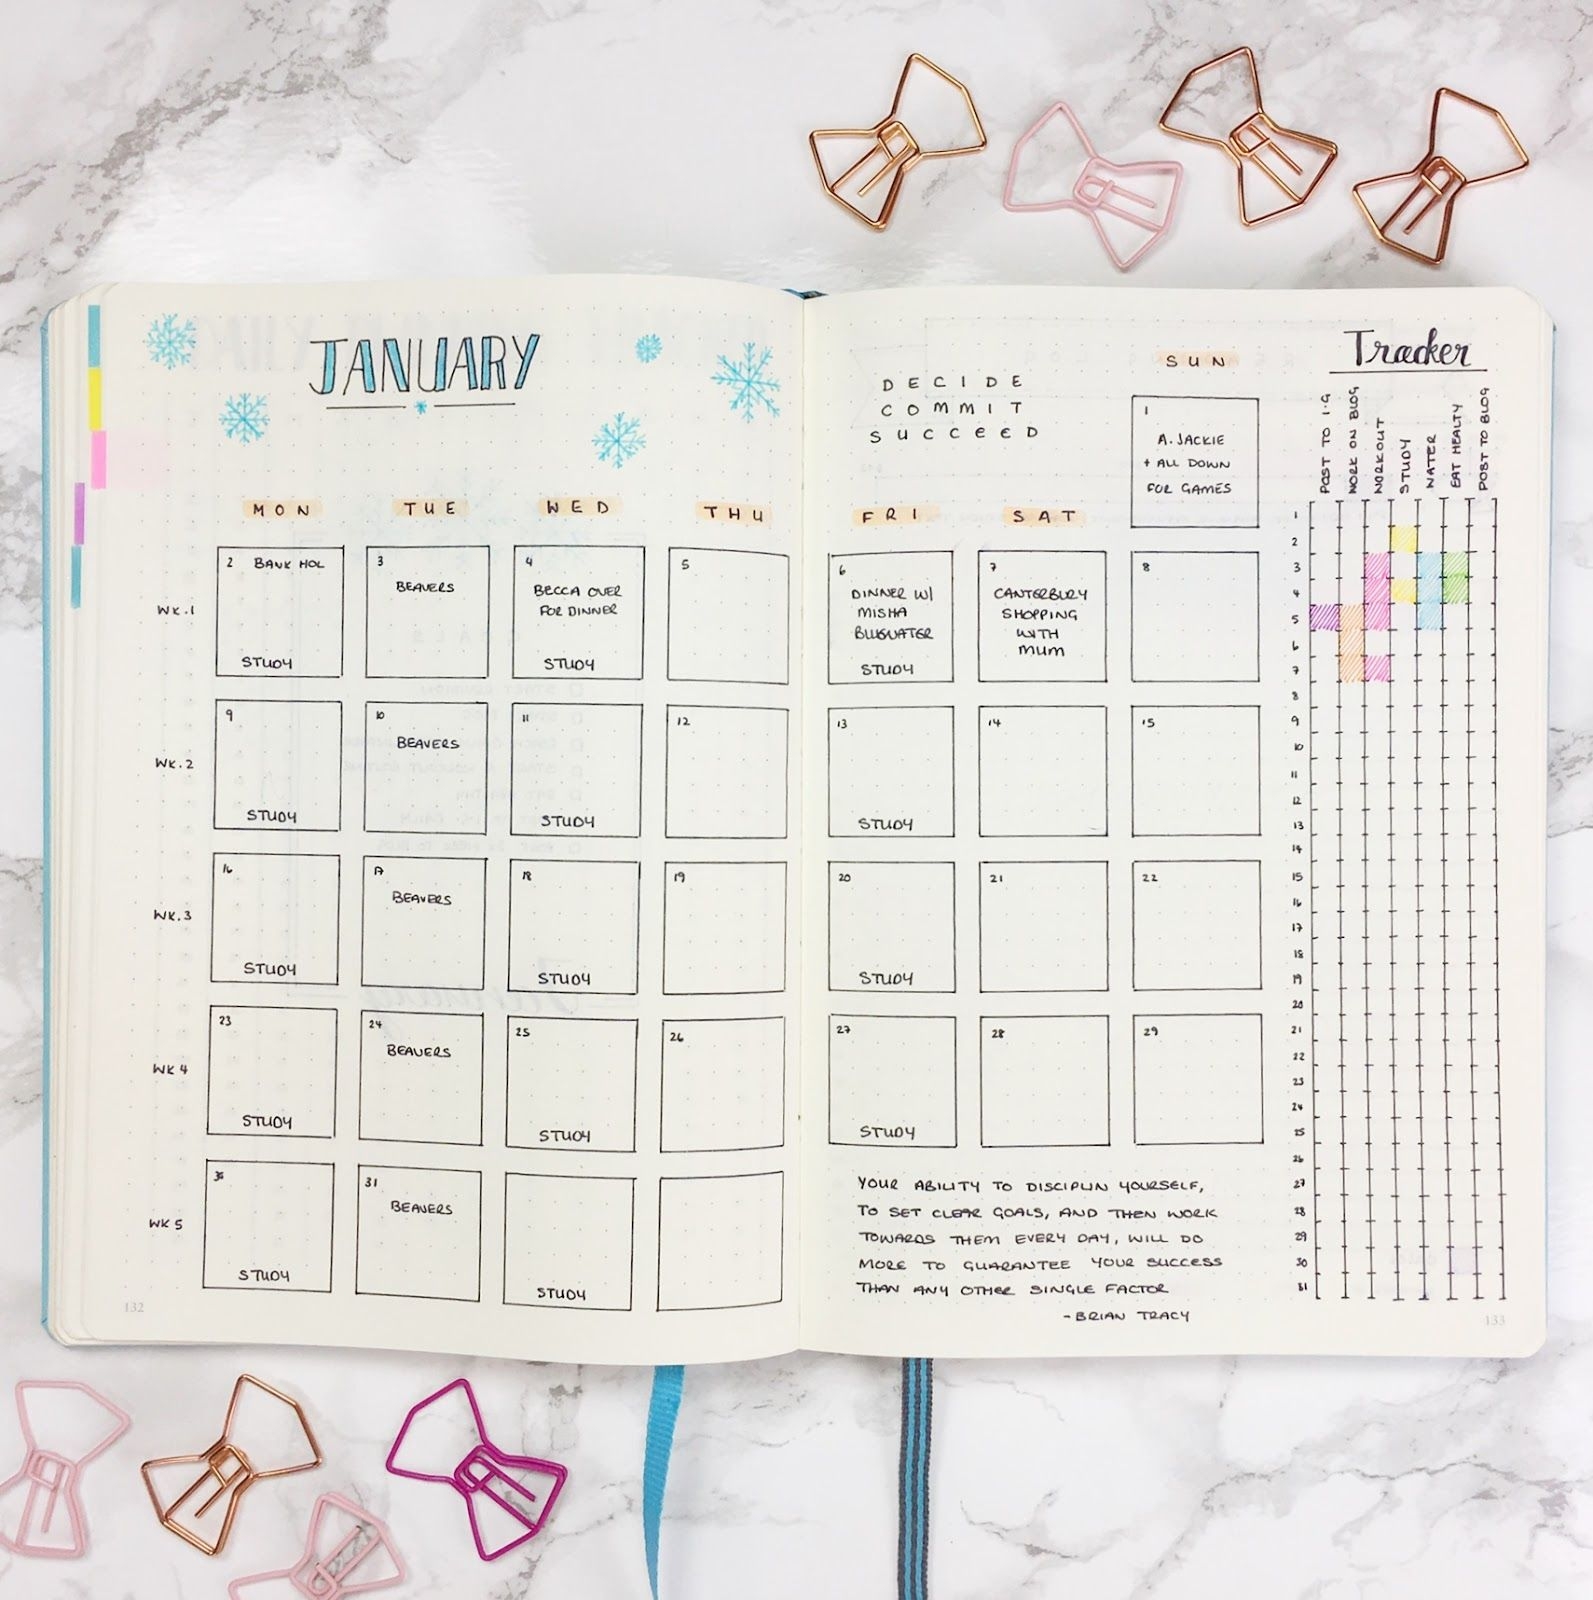 JANUARY
DECIDE
COMMIT
SUCCEED
SUN
1
A. JACKIE
+ ALL DOWN
FOR GAMES
MON TUE WED THU FRI SAT
WK.1
2 BANK HOL
STUDY
3
BEAVERS
4
BECCA OVER
FOR DINNER
STUDY
5
6
DINNER W/
MISHA
BLUEWATER
STUDY
7
CANTERBURY
SHOPPING
WITH
MUM
8
WK.2
9
STUDY
10
BEAVERS
11
STUDY
12
13
STUDY
14
15
WK.3
16
STUDY
17
BEAVERS
18
STUDY
19
20
STUDY
21
22
WK4
23
STUDY
24
BEAVERS
25
STUDY
26
27
STUDY
28
29
WK5
30
STUDY
31
BEAVERS
STUDY
YOUR ABILITY TO DISCIPLIN YOURSELF,
TO SET CLEAR GOALS, AND THEN WORK
TOWARDS THEM EVERY DAY, WILL DO
MORE TO GUARANTEE YOUR SUCCESS
THAN ANY OTHER SINGLE FACTOR
-BRIAN TRACY
Tracker
POST TO I.G
WORK ON BLOG
WORKOUT
STUDY
WATER
EAT HEALTY
POST TO BLOG
1
2
3
4
5
6
7
8
9
10
11
12
13
14
15
16
17
18
19
20
21
22
23
24
25
26
27
28
29
30
31
132
133